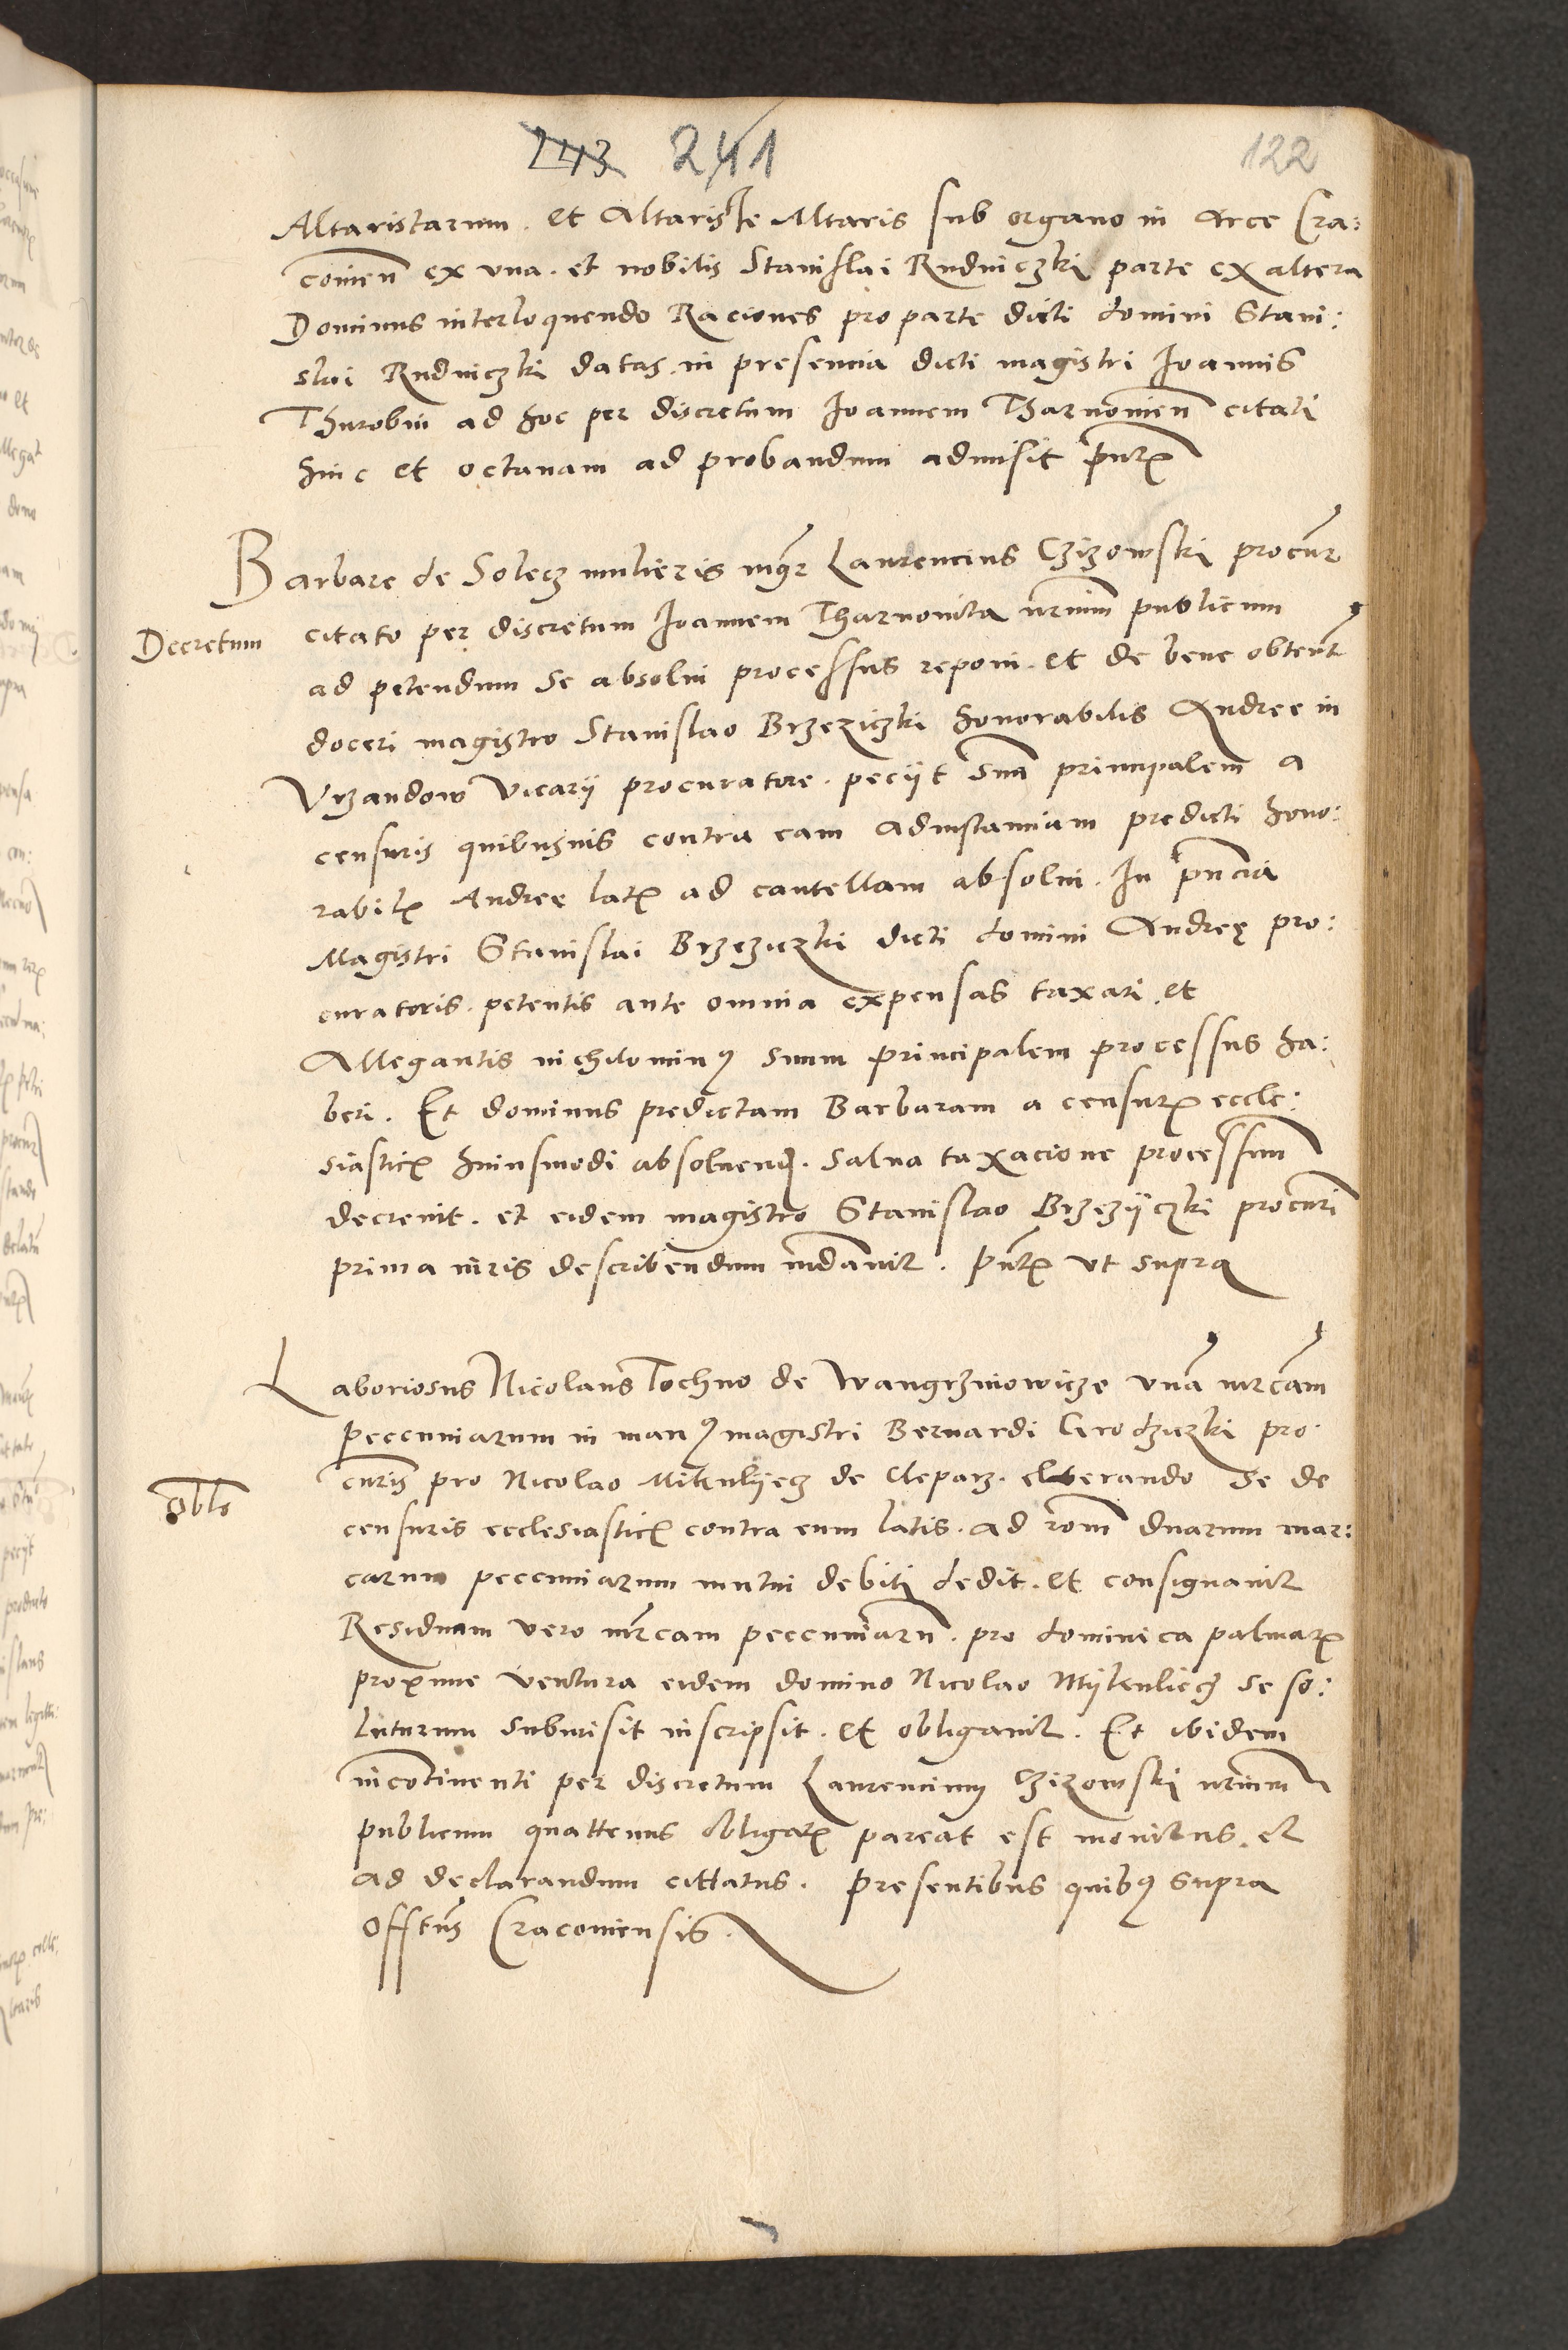 243 241 122
Altaristarum . et Altariste Altaris sub organo in Arce Cra:
couien ex vna . et nobilis Stanislai Rudniczki parte ex altera
Dominus interloquendo Raciones pro parte dicti domini Stani:
slai Rudniczki datas . in presencia dicti magistri Joannis
Thurobin ad hoc per discretum Joannem Tharnouien citati
hinc et octauam ad probandum admisit pntꝭ
Barbare de Solecz mulieris mgr Laurencius Czizowski procur
Decretum
citato per discretum Joannem Tharnouita nrium publicum
ad petendum se absolui processus reponi . et de bene obtent
doceri magistro Stanislao Brzeziczki honorabilis Andree in
Vrzandow vicarij procuratore . peciit suā principalem a
censuris quibusuis contra eam ad instanciam predicti hono:
rabilꝭ Andree latꝭ ad cautellam absolui . In pncia
Magistri Stanislai Brzeziczki dicti domini Andreę pro:
curatoris . petentis ante omnia expensas taxari et
Allegantis nichilominꝰ suum principalem processus ha:
beri . Et dominus predictam Barbaram a censurꝭ eccle:
siasticꝭ huiusmodi absoluend . salua taxacione processuum
decreuit . et eidem magistro Stanislao Brzezijczki procuri
prima iuris describendum mdauit . pntꝭ vt supra
Laboriosus Nicolaus Tochno de Wangrzinowicze vnā mrcam
peccuniarum in manꝰ magistri Bernardi Grodziczki pro
curis pro Nicolao Mikulijecz de Cleparz . eliberando se de
Oblo
censuris ecclesiasticꝭ contra eum latis . ad rom duarum mar:
carum peccuniarum mutui debiti dedit . et consignauit
Residuam vero mrcam peccuniarū . pro dominica palmarꝭ
proxime ventura eidem domino Nicolao Mijkuliecz se so:
luturum submisit inscripsit . et obligauit . Et ibidem
incontinenti per discretum Laurencium Czizowski nrium
publicum quattenus obligatꝭ pareat est monitus . et
ad declarandum cittatus . Presentibus quibꝰ supra
Offtus Cracouiensis .